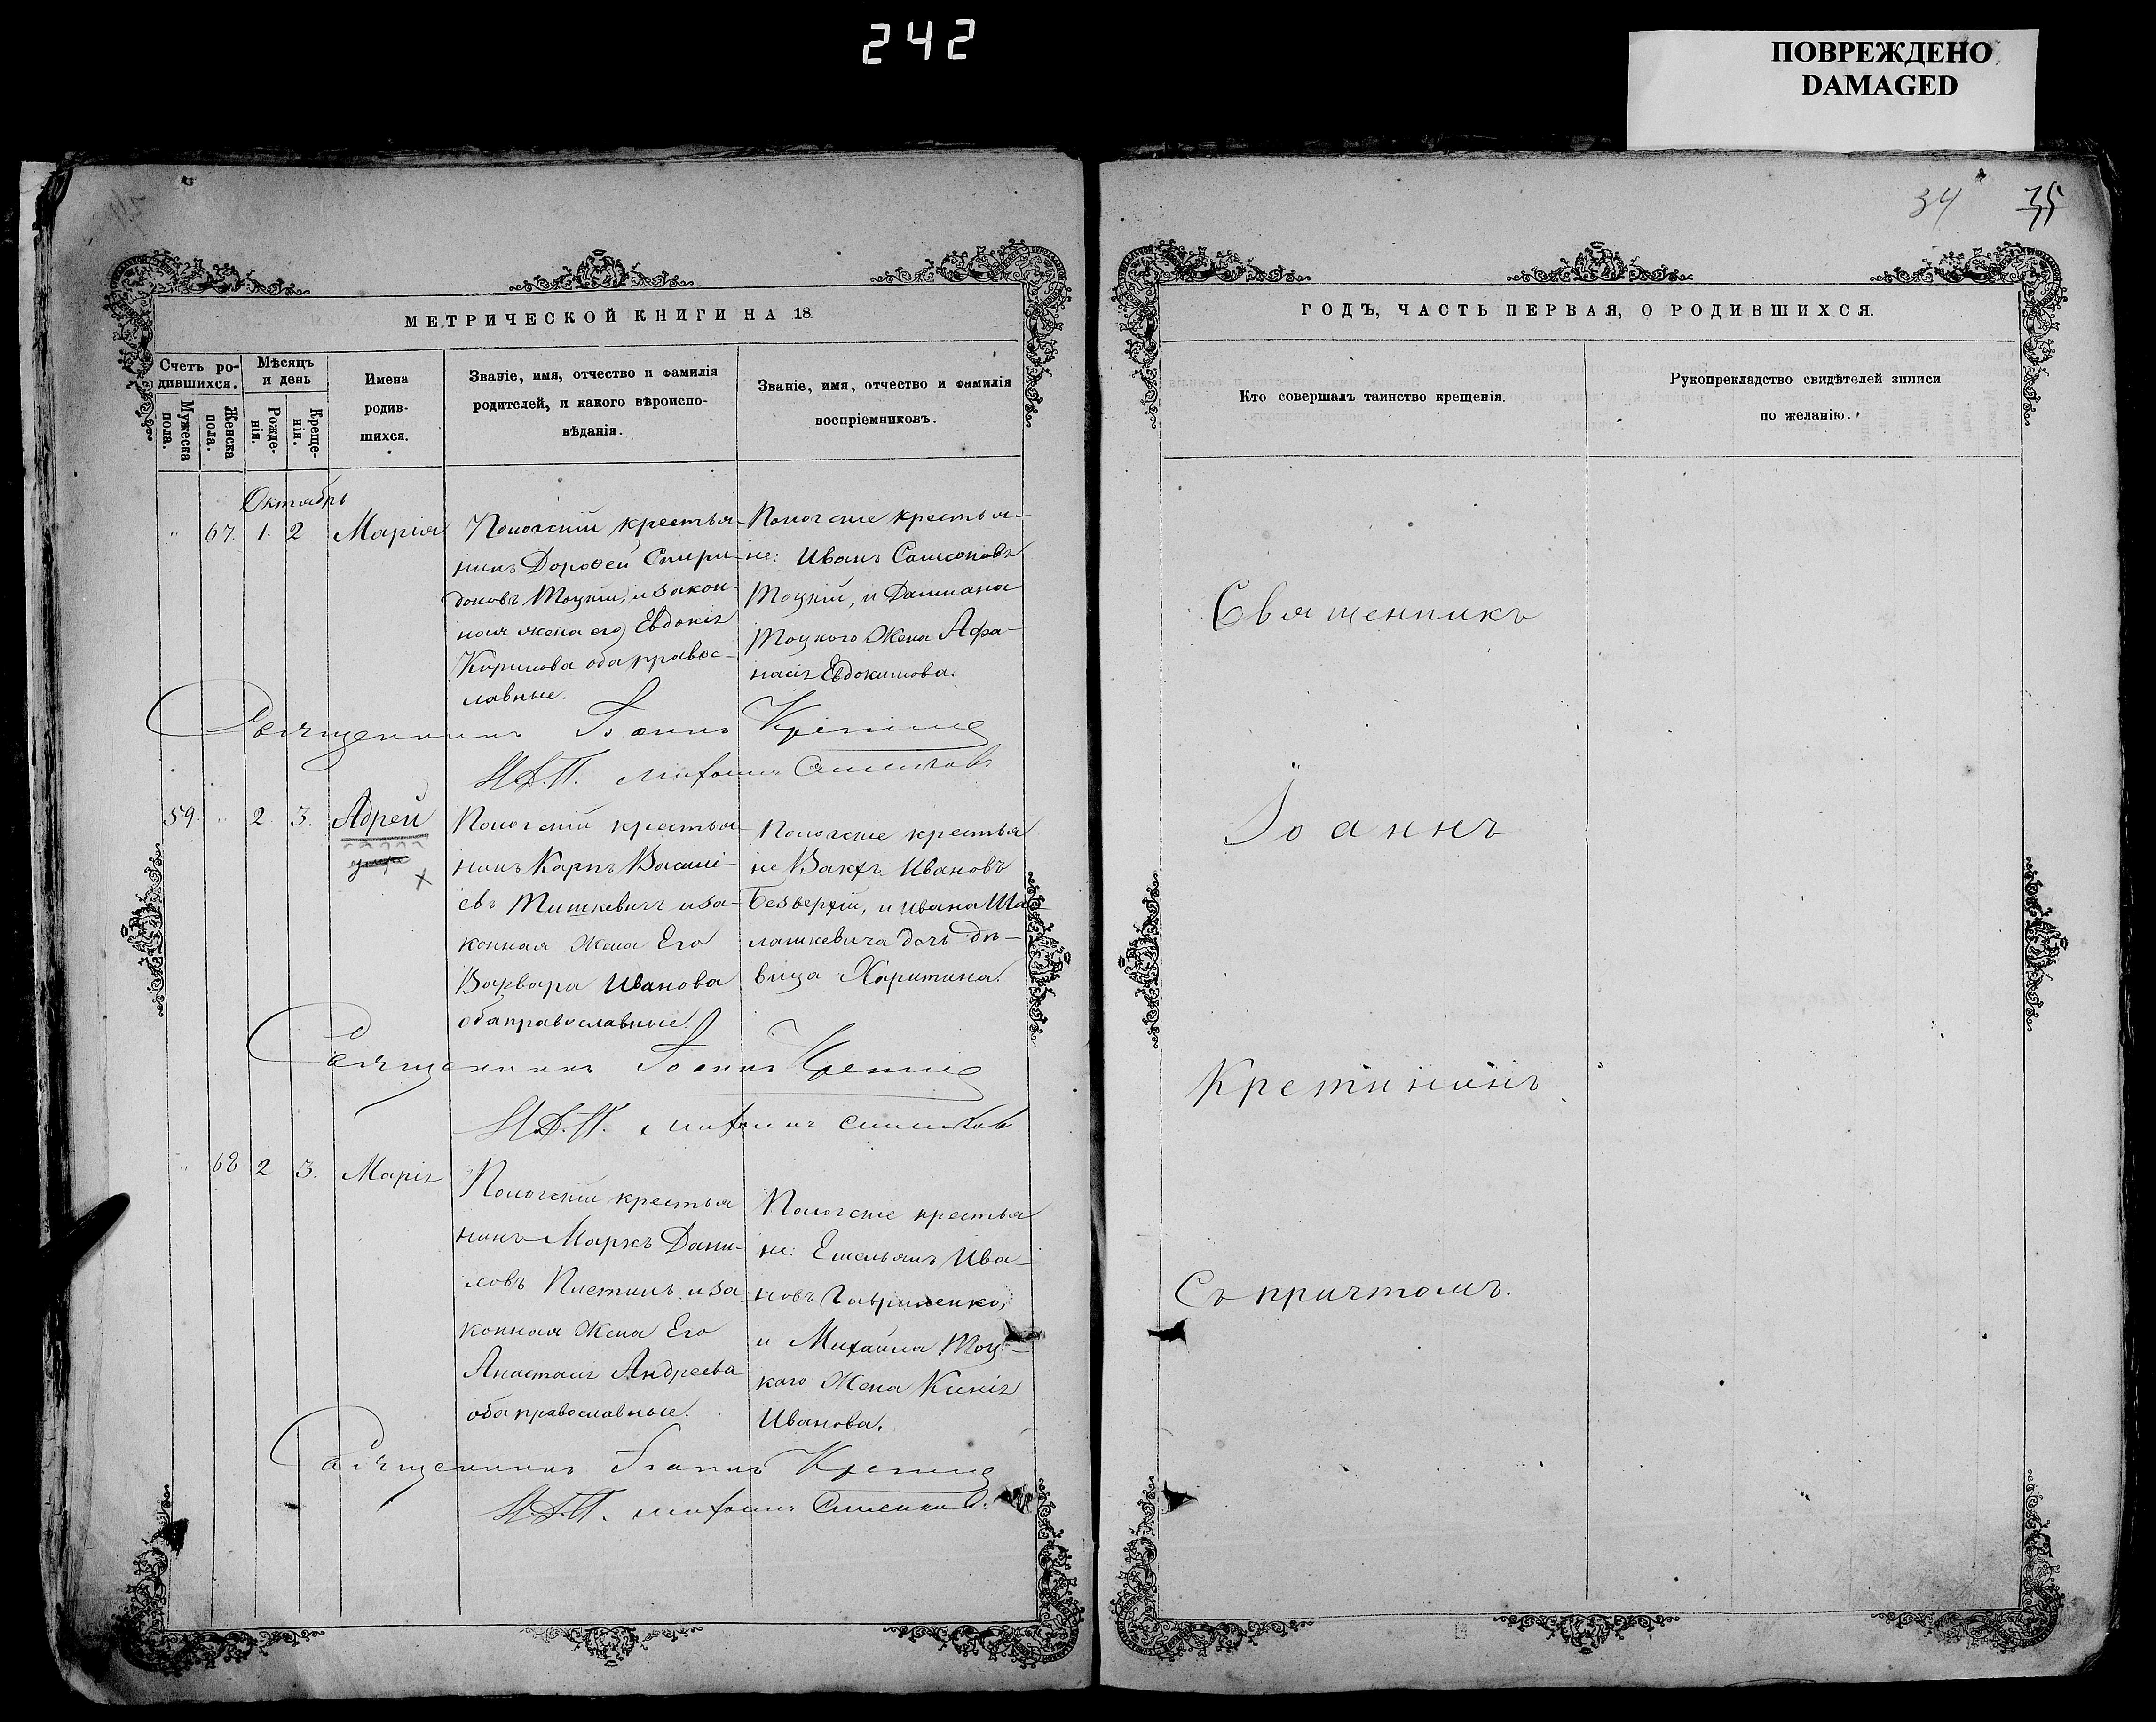 242
ПОВРЕЖДЕНО
DAMAGED
34 35
МЕТРИЧЕСКОЙ КНИГИ НА 18
Счетъ ро-
дившихся.
Мужеска
пола.
Женска
пола.
Мѣсяцъ
и день
Рожде-
нія.
Креще-
нія.
Имена
родив-
шихся.
Званіе, имя, отчество и фамилія
родителей, и какого вѣроиспо-
вѣданія.
Званіе, имя, отчество и фамилія
воспріемниковъ.
Октябрь
" 67. 1. 2 Марія
Пологскій крестья-
нинъ Дорофей Спири-
доновъ Моцкій, и закон-
ная жена его Евдокія
Кирилова оба правос-
лавные.
Пологскіе крестья-
не: Иванъ Самсоновъ
Моцкій, и Даміана
Моцкого Жена Афа-
насія Евдокимова.
Священникъ Іоаннъ
И.Д.П. Михаилъ
59. " 2. 3. Адрей
умре
х
Пологскій крестья-
нинъ Карпъ Васили-
евъ Тишкевичъ и за-
конная Жена Его
Варвара Иванова
оба православные.
Пологскіе крестья
не Вакхъ Ивановъ
Безверхій, и Ивана Ша-
лашкевича дочь дѣ-
вица Харитина.
Священникъ Іоаннъ
И.Д.П. Михаилъ
" 68 2 3. Марія
Пологскій крестья
нинъ Маркъ Дани-
ловъ Плетинь и за-
конная Жена Его
Анастасія Андреева
оба православные.
Пологскіе крестья
не: Емельянъ Ива-
новъ Гавриленко,
и Михаила Моц-
каго Жена Ксенія
Иванова.
Священникъ Іоаннъ
И.Д.П. Михаилъ
ГОДЪ, ЧАСТЬ ПЕРВАЯ, О РОДИВШИХСЯ.
Кто совершалъ таинство крещенія.
Рукоприкладство свидѣтелей записи
по желанію.
Священникъ
Іоаннъ
Кретининъ
Съ причтомъ.